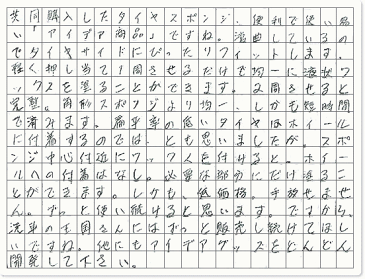 共同購入したタイヤスポンジ、便利で使い易
い「アイデア商品」ですね。湾曲しているの
でタイヤサイドにぴったりフィットします。
軽く押し当て1周させるだけで均一に液状ワ
ックスを塗ることができます。2周させると
完璧。角形スポンジより均一、しかも短時間
で済みます。扁平率の低いタイヤはホイール
に付着するのでは、とも思いましたが。スポ
ンジ中心付近にワックスを付けると。ホイー
ルへの付着はなし。必要な部分にだけ塗るこ
とができます。しかも、低価格。手放せませ
ん。ずっと使い続けると思います。ですから、
洗車の王国さんにはずっと販売し続けてほし
いですね。他にもアイデアグッズをどんどん
開発して下さい。